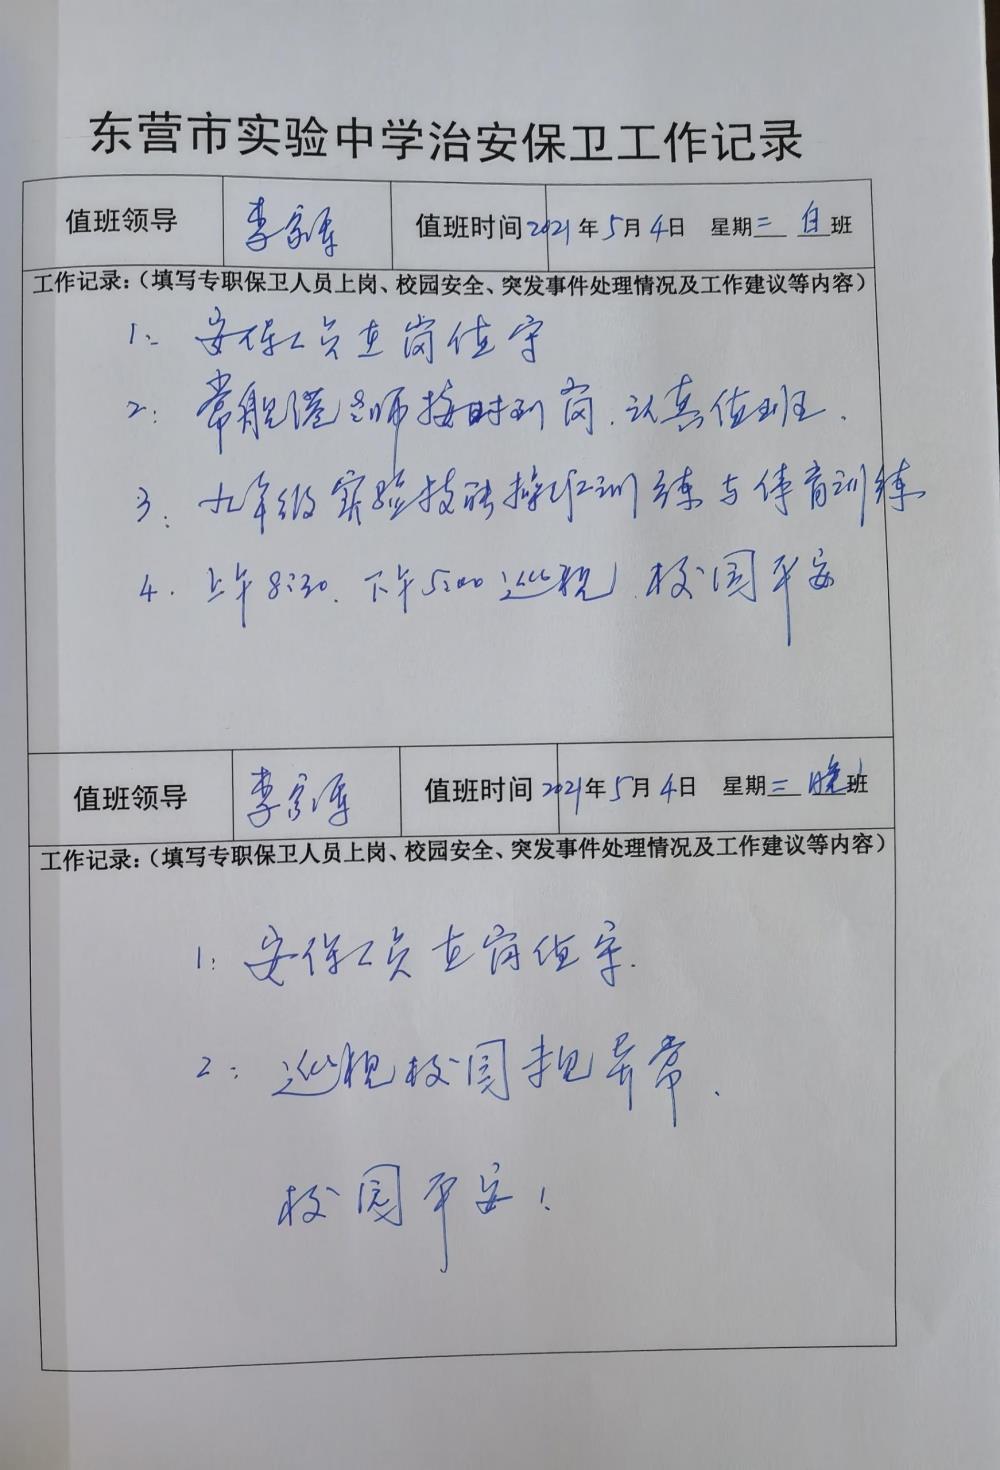 东营市实验中学治安保卫工作记录
值班领导 李 值班时间 2021年5月4日 星期二 白班
工作记录:（填写专职保卫人员上岗、校园安全、突发事件处理情况及工作建议等内容）
1: 安保人员在岗值守
2: 常 老师按时到岗.认真值班.
3: 九年级实验技能操作训练与体育训练
4. 上午8:30.下午5:00巡视.校园平安
值班领导 李 值班时间 2021年5月4日 星期二 晚班
工作记录:（填写专职保卫人员上岗、校园安全、突发事件处理情况及工作建议等内容）
1: 安保人员在岗值守.
2: 巡视校园未见异常.
校园平安!